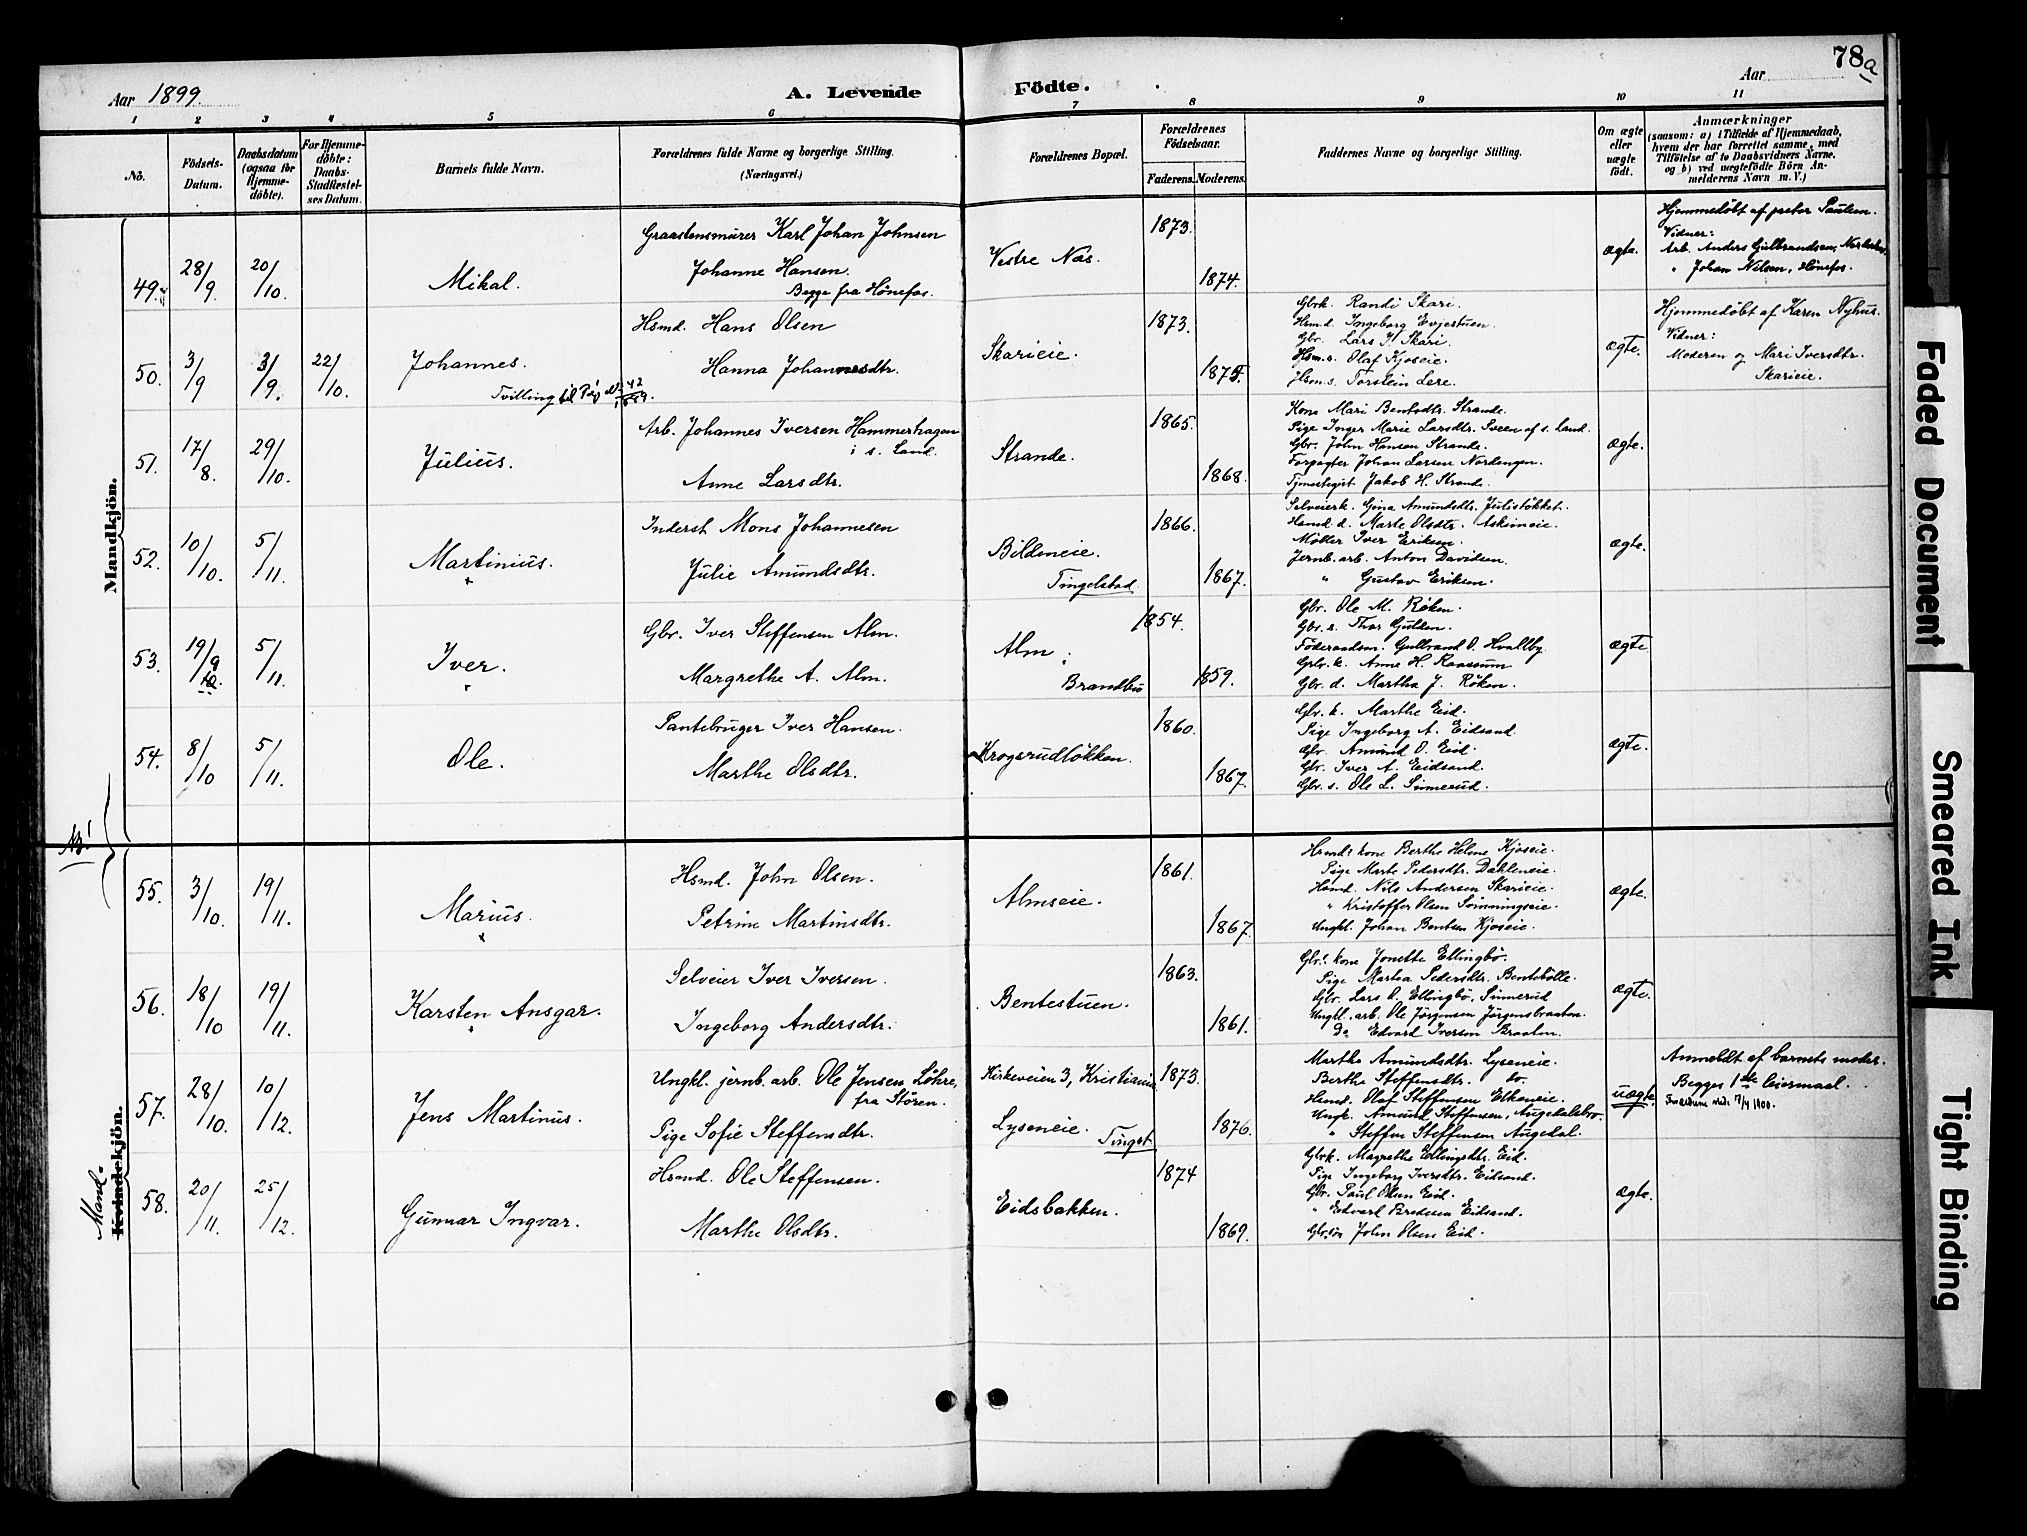 78a
Aar 1899.
A. Levende Födte.
Aar
1 2 3 4 5 6 7 8 9 10 11
No.
Födsels-Datum.
Daabsdatum (ogsaa for Hjemme-döbte).
For Hjemme-döbte: Daabs-Stadfæstel-ses Datum.
Barnets fulde Navn.
Forældrenes fulde Navne og borgerlige Stilling.
(Næringsvei.)
Forældrenes Bopæl.
Forældrenes Födselsaar.
Faderens. Moderens.
Faddernes Navne og borgerlige Stilling.
Om ægte eller uægte födt.
Anmærkninger
(saasom: a) i Tilfælde af Hjemmedaab, hvem der har forrettet samme, med Tilföielse af to Daabsvidners Navne. og b) ved uægtefödte Börn An-melderens Navn m. V.)
Mandkjön.
49. 28/9. 20/10. Mikal.
Graastensmurer Karl Johan Johnsen
Johanne Hansen.
Begge fra Hönefos.
Vestre Næs. 1873. 1874. ægte.
Hjemmedöbt af pastor Paulsen.
Vidner:
Arb. Anders Gulbrandsen,
" Johan Nilsen, Hönefos.
50. 3/9 3/9. 22/10. Johannes.
Tvilling til Pige No 42 1899.
Hsmd. Hans Olsen
Hanna Johannesdtr.
Skarieie. 1873. 1875.
Gbrk. Randi Skari.
Hsm.d. Ingeborg Evjestuen.
Gbr. Lars J. Skari.
Hsm.s. Olaf Kjoseie.
Hsm.s. Torstein Lere.
ægte.
Hjemmedöbt af Karen Nyhus.
Vidner:
Moderen og Mari Iversdtr. Skarieie.
51. 17/8. 29/10. Julius.
Arb. Johannes Iversen Hammerhagen
i s. Land.
Anne Larsdtr.
Strande. 1865. 1868.
Kone Mari Bentsdtr. Strande.
Pige Inger Marie Larsdtr. Sveen af s. Land.
Gbr. John Hansen Strande.
Forpagter Johan Larsen Nordengen.
Tjenestegut Jakob H. Strande.
ægte.
52. 10/10. 5/11. Martinius.
Inderst Mons Johannesen
Julie Amundsdtr.
Bildeneie.
Tingelstad
1866. 1867.
Selveierk. Gina Amundsdtr. Julistökket.
Hsmd. d. Marte Olsdtr. Askimeie.
Möller Iver Eriksen.
Jernb. arb. Anton Davidsen.
" Gustav Eriksen.
ægte.
53. 19/9 5/11. Iver.
Gbr. Iver Steffensen Alm.
Margrethe A. Alm.
Alm.
Brandbu
1854. 1859.
Gbr. Ole M. Röken.
Gbr. s. Thor Gulden.
Föderaadsm. Gulbrand O. Hvalby
Gbr. k. Anne H. Raassum
Gbr. d. Martha J. Röken.
ægte
54. 8/10 5/11. Ole.
Pantebruger Iver Hansen.
Marthe Olsdtr.
Krogsrudlökken. 1860. 1867.
Gbr. k. Marthe Eid.
Pige Ingeborg A. Eidsand.
Gbr. Amund O. Eid.
Gbr. Iver A. Eidsand.
Gbr. s. Ole L. Sinnerud.
ægte.
Nb!
Mand-
Kvindekjön.
55. 3/10. 19/11. Marius.
Hsmd. John Olsen.
Petrine Martinsdtr.
Almseie. 1861. 1867.
Hsmds kone Berthe Helene Kjoseie.
Pige Marte Pedersdtr. Dahleneie.
Hsmd. Nils Andersen Skarieie.
" Kristoffer Olsen
Ungkl. Johan Bentsen Kjoseie.
ægte.
56. 18/10 19/11. Karsten Ansgar.
Selveier Iver Iversen.
Ingeborg Andersdtr.
Bentestuen. 1863. 1861.
Gbrs. kone Jonette Ellingbö.
Pige Martea Pedersdtr. Bentebölle.
Gbr. Lars O. Ellingbö, Sinnerud
Ungkl. arb. Ole Jörgensen Jörgensbraaten.
Do Edvard Iversen Braaten.
ægte.
57. 28/10. 10/12. Jens Martinus.
Ungkl. jernb. arb. Ole Jensen Löhre,
fra Stören.
Pige Sofie Steffensdtr.
Kirkeveien 3, Kristiania
Lyseneie. Tingst
1873. 1876.
Marthe Amundsdtr. Lyseneie.
Berthe Steffensdtr. do.
Hsmd. Olaf Steffensen Elkeneie.
Ungk. Amund Steffensen,
" Steffen Steffensen Augedal.
uægte.
Anmeldt af barnets moder.
Begges 1ste leiermaal.
58. 20/11. 25/12. Gunnar Ingvar.
Hsmd. Ole Steffensen.
Marthe Olsdtr.
Eidsbakken. 1874 1869.
Gbrk. Magrethe Erlingsdtr. Eid.
Pige Ingeborg Iversdtr. Eidsand.
Gbr. Paul Olsen Eid.
" Edvart Eidsand.
Gbr.sön John Olsen Eid.
ægte.
Faded Document
Smeared Ink
Tight Binding